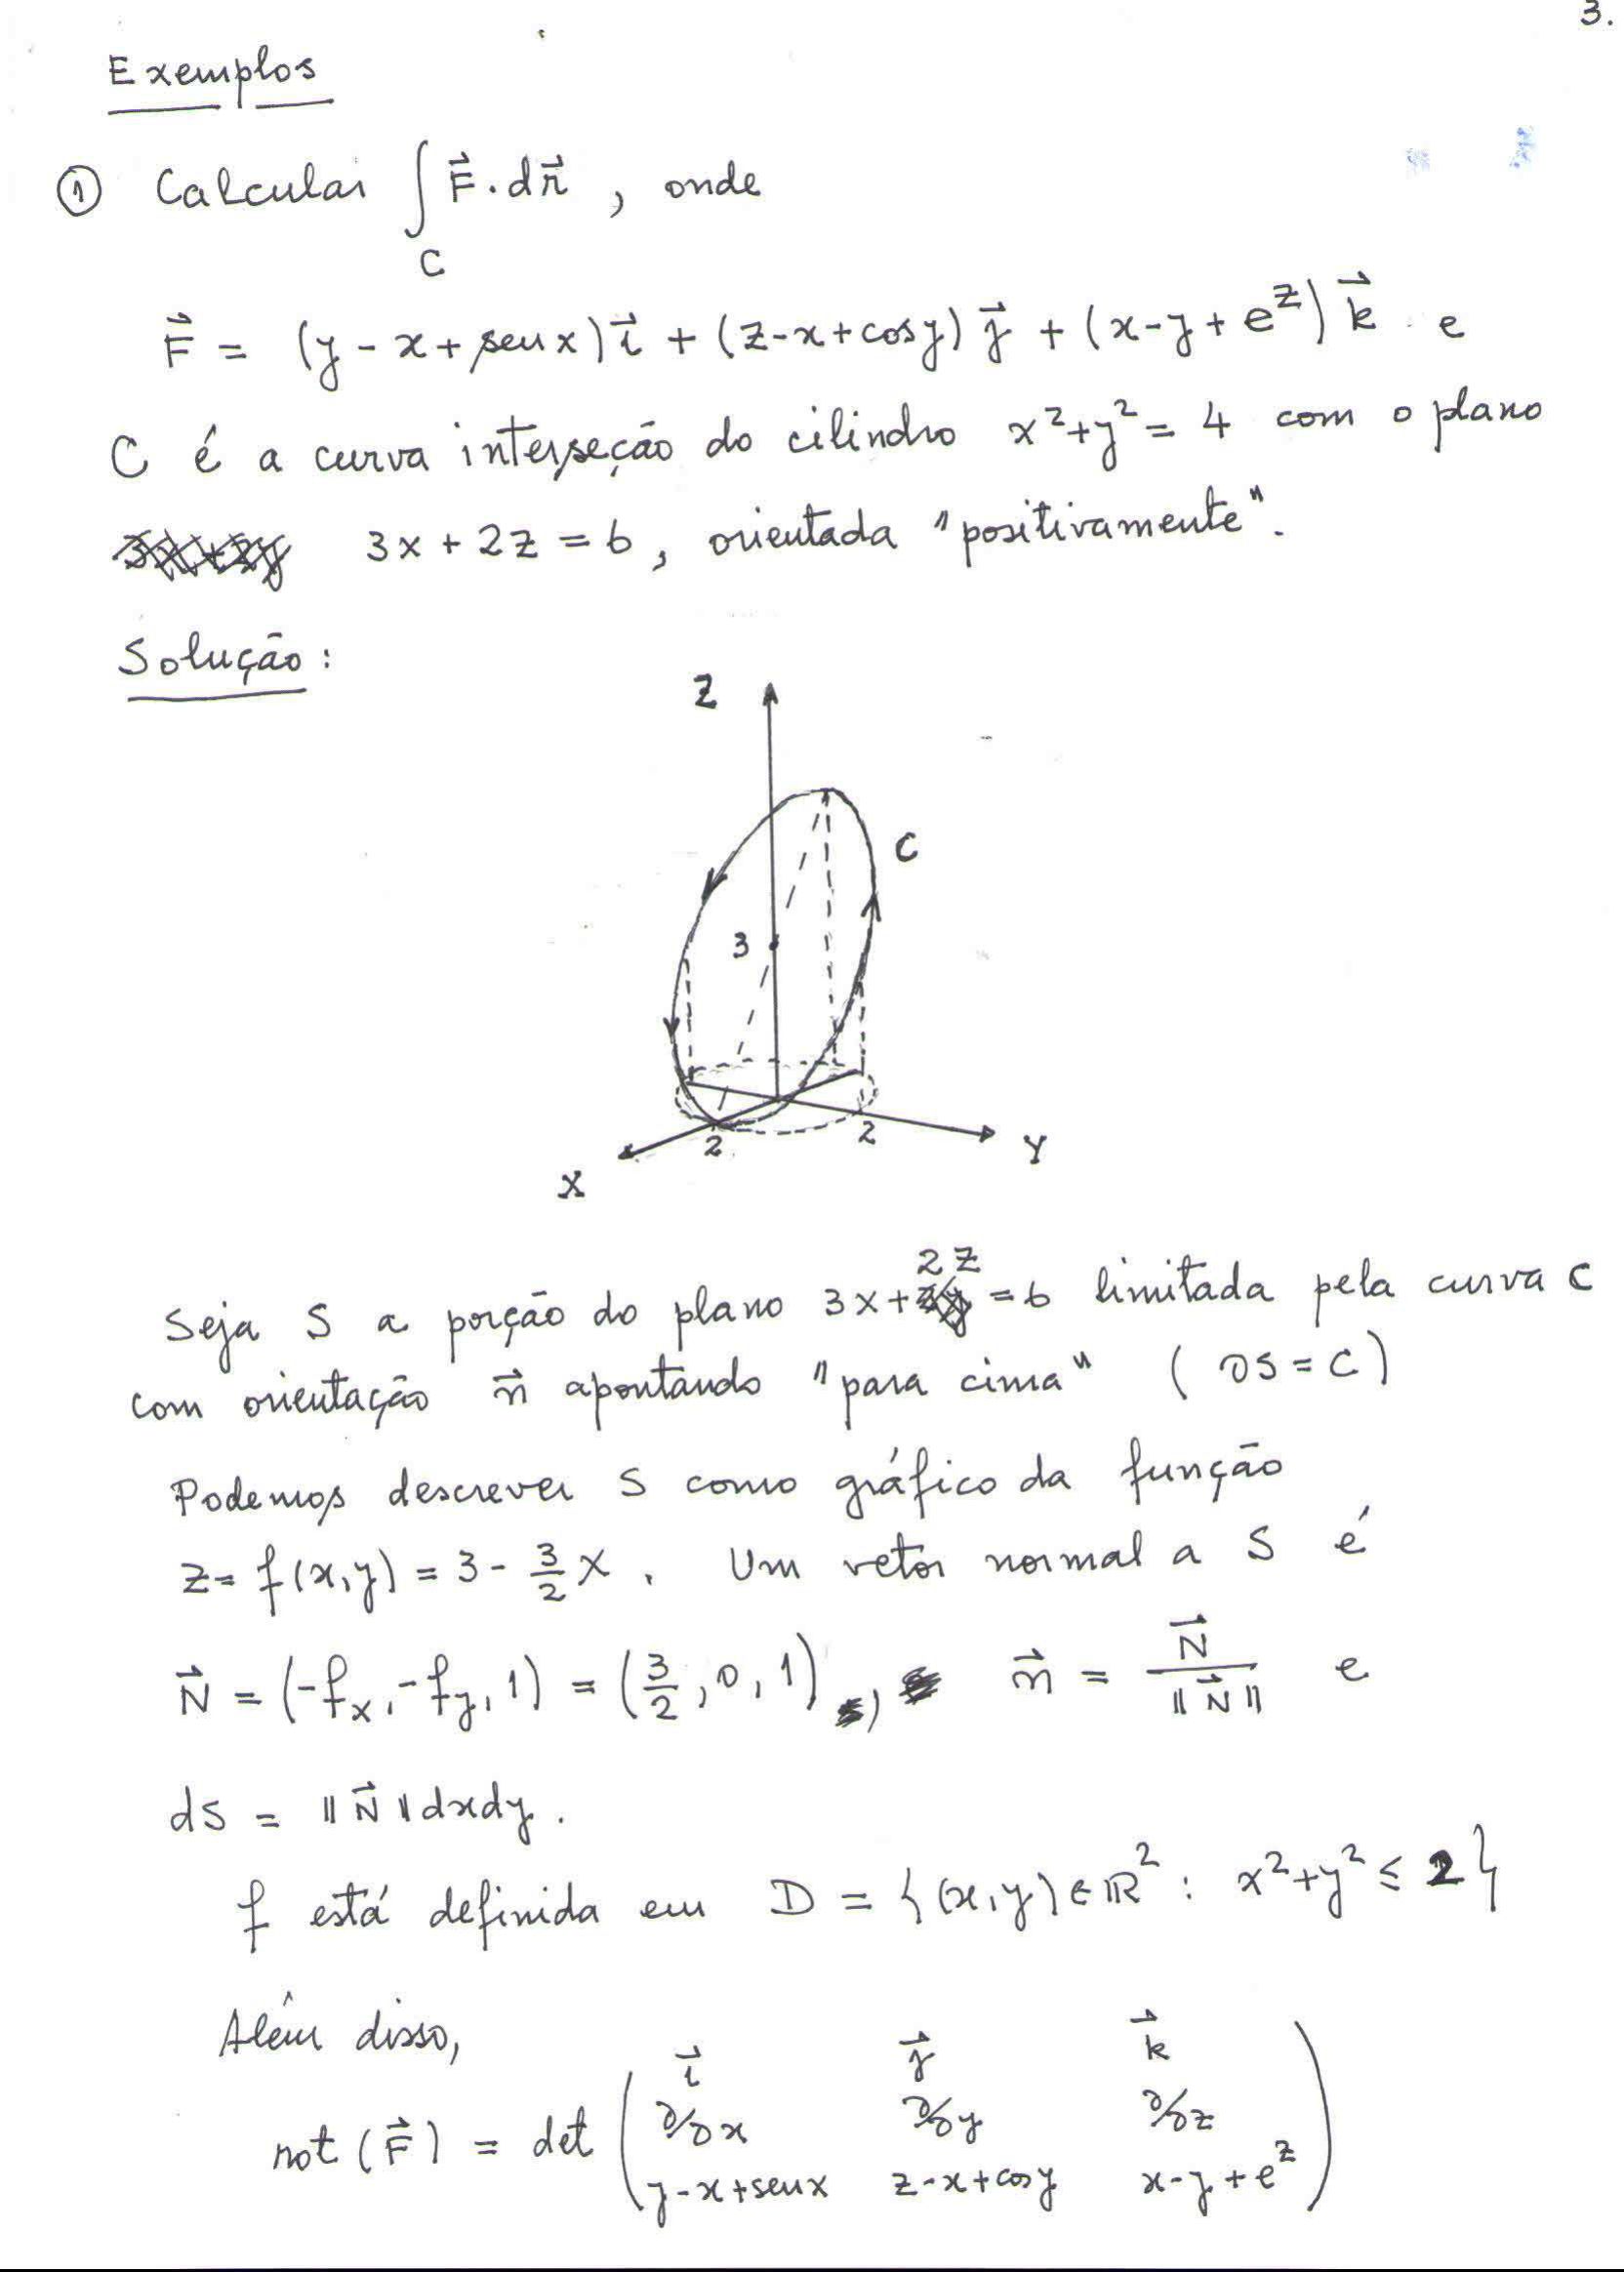 3.
Exemplos
① Calcular ∫_C F⃗ · dr⃗ , onde
F⃗ = (y - x + sen x) i⃗ + (z - x + cos y) j⃗ + (x - y + e^z) k⃗ e
C é a curva interseção do cilindro x² + y² = 4 com o plano
3x + 2z = 6, orientada "positivamente".
Solução:
Z
C
3
2
2
Y
X
Seja S a porção do plano 3x + 2z = 6 limitada pela curva C
com orientação n⃗ apontando "para cima" ( ∂S = C )
Podemos descrever S como gráfico da função
z = f(x,y) = 3 - 3/2 x . Um vetor normal a S é
N⃗ = (-f_x, -f_y, 1) = (3/2, 0, 1), n⃗ = N⃗/||N⃗|| e
dS = ||N⃗|| dxdy.
f está definida em D = {(x,y) ∈ ℝ² : x² + y² ≤ 2}
Além disso,
i⃗ j⃗ k⃗
rot (F⃗) = det ( ∂/∂x ∂/∂y ∂/∂z )
y - x + sen x z - x + cos y x - y + e^z